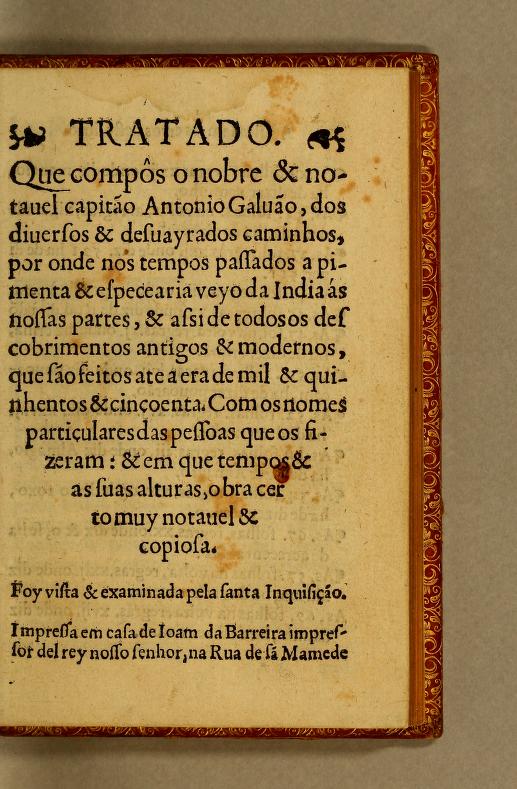 TRATADO.
Que compôs o nobre & no-
tauel capitão Antonio Galuão, dos
diuersos & desuayrados caminhos,
por onde nos tempos passados a pi-
menta & especearia veyo da India ás
nossas partes, & assi de todos os des
cobrimentos antigos & modernos,
que são feitos ate a era de mil & qui-
nhentos & cincoenta. Com os nomes
particulares das pessoas que os fi-
zeram: & em que tempos &
as suas alturas, obra cer
to muy notauel &
copiosa.
Foy vista & examinada pela santa Inquisição.
Impressa em casa de Ioam da Barreira impres-
sor del rey nosso senhor, na Rua de sã Mamede